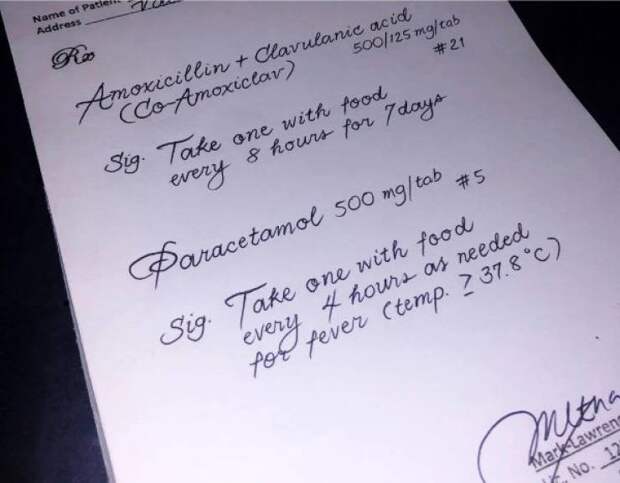 Name of Patient
Address
Rx
Amoxicillin + Clavulanic acid
(Co-Amoxiclav) 500/125 mg/tab
#21
Sig. Take one with food
every 8 hours for 7 days
Paracetamol 500 mg/tab #5
Sig. Take one with food
every 4 hours as needed
for fever (temp. ≥ 37.8°C)
Mark Lawren
No. 12